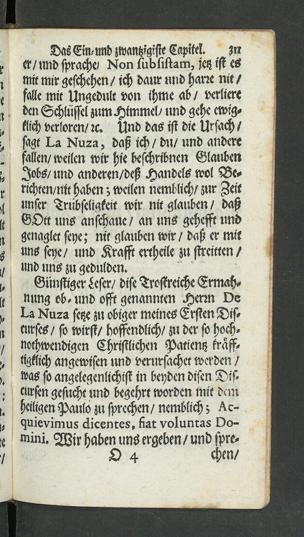 Das Ein- und zwantzigiste Capitel. 311
er/ und sprache/ Non subsistam, jetz ist es
mit mir geschehen/ ich daur und harre nit/
falle mit Ungedult von ihme ab/ verliere
den Schlüssel zum Himmel/ und gehe ewig-
klich verloren/ ꝛc. Und das ist die Ursach/
sagt La Nuza, daß ich/ du/ und andere
fallen/ weilen wir hie beschribnen Glauben
Jobs/ und anderen/ deß Handels wol Be-
richten/ nit haben; weilen nemblich/ zur Zeit
unser Trübseligkeit wir nit glauben/ daß
GOtt uns anschaue/ an uns gehefft und
genaglet seye; nit glauben wir/ daß er mit
uns seye/ und Krafft ertheile zu streitten/
und uns zu gedulden.
Günstiger Leser/ dise Trostreiche Ermah-
nung ob- und offt genannten Herrn De
La Nuza setze zu obiger meines Ersten Dis-
curses/ so wirst/ hoffendlich/ zu der so hoch-
nothwendigen Christlichen Patientz kräff-
tigklich angewisen und verursachet werden/
was so angelegenlichist in beyden disen Dis-
cursen gesucht und begehrt worden mit dem
heiligen Paulo zu sprechen/ nemblich; Ac-
quievimus dicentes, fiat voluntas Do-
mini. Wir haben uns ergeben/ und spre-
O 4 chen/